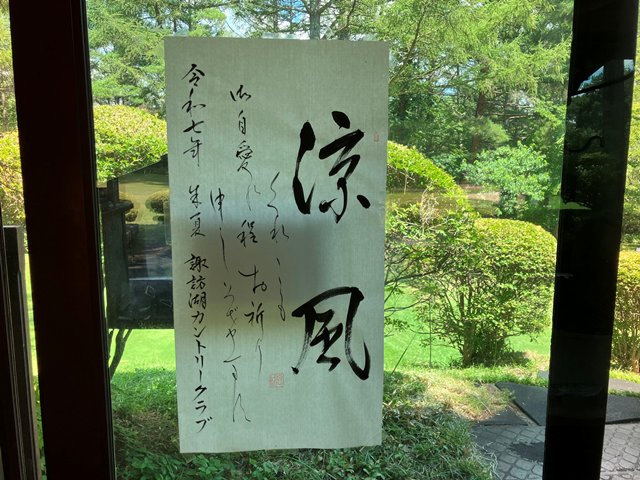 涼風
くれぐれも
御自愛の程お祈り
申し上げます
令和七年 朱夏 諏訪湖カントリークラブ